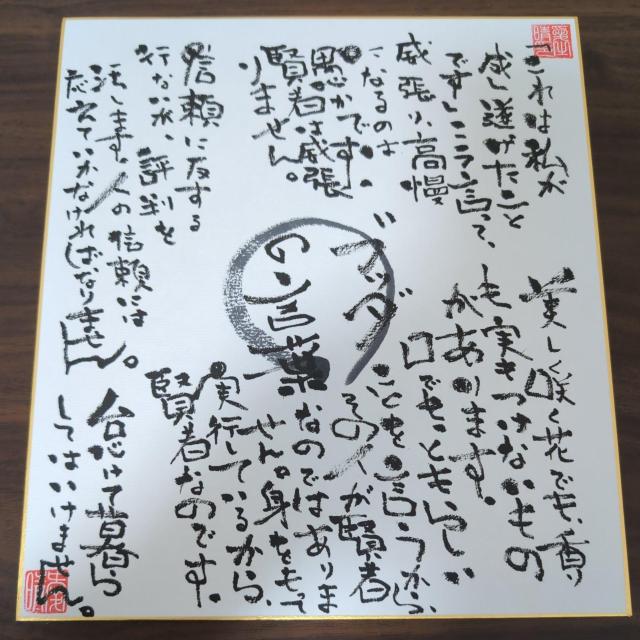 「これは私が
成し遂げたこと
です」こう言って、
威張り高慢
になるのは
愚かです。
賢者は威張
りません。
信頼に反する
行ない水、評判を
汚します。人の信頼には
応えていかなければなりません。
ブッダ
の言葉
美しく咲く花でも、香り
も実もつけないもの
があります。
口でもっともらしい
ことを言うから、
その人が賢者
なのではありま
せん。身をもって
実行しているから、
賢者なのです。
怠けて暮ら
してはいけません。